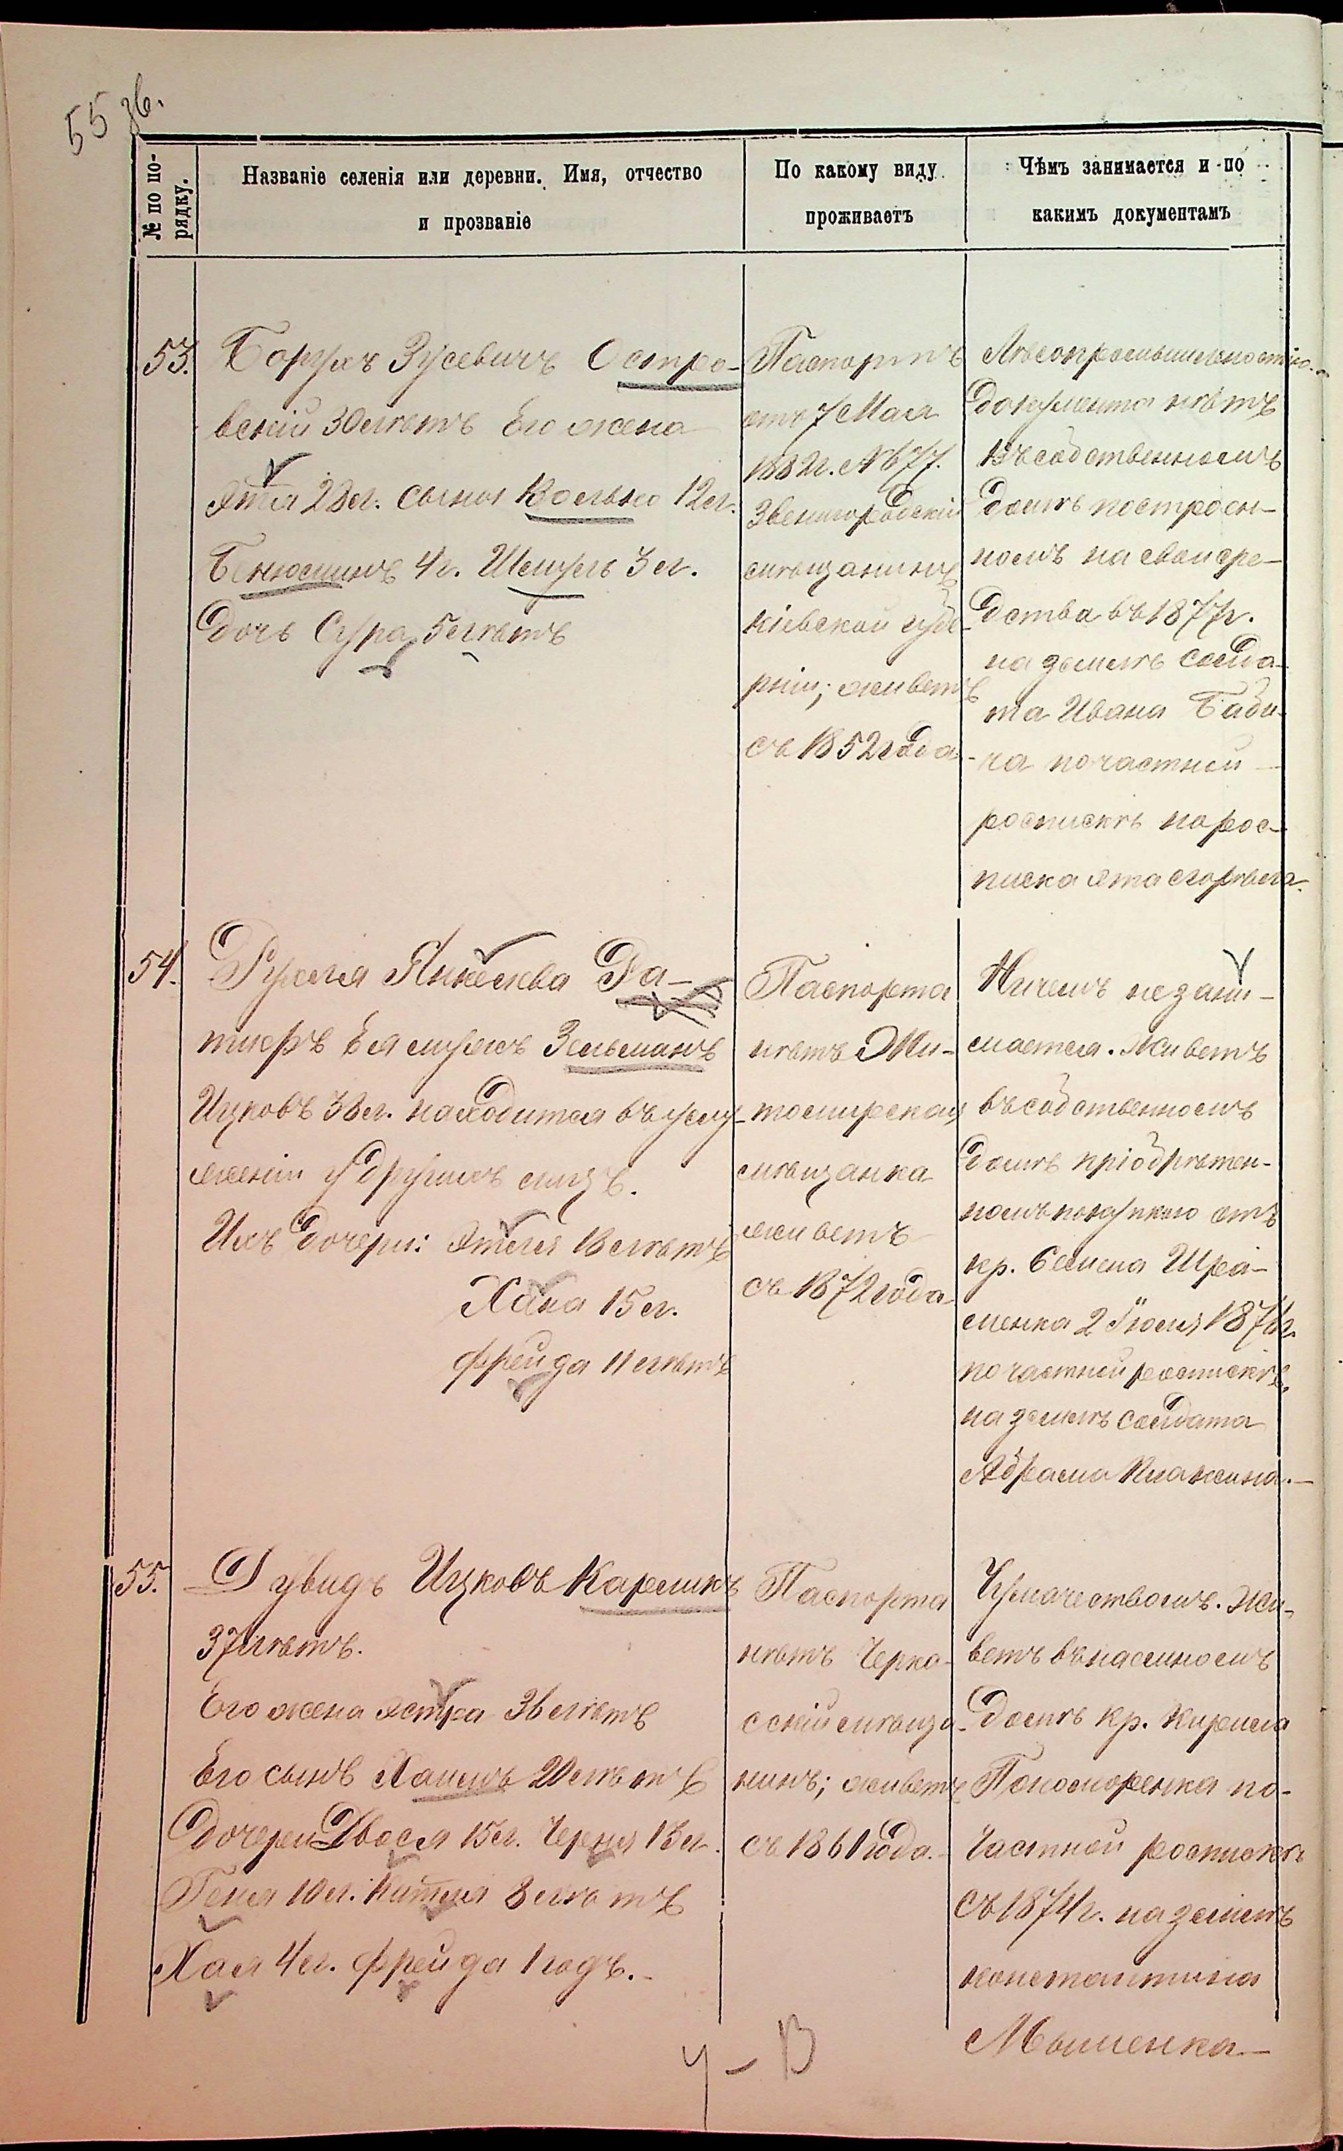 55 зв.
№ по по-
рядку.
Названіе селенія или деревни. Имя, отчество
и прозваніе
По какому виду
проживаетъ
Чѣмъ занимается и по
какимъ документамъ
53.
Борухъ Зусевичъ Остро-
вскій 30 лѣтъ Его жена
Этля 28 л. сыны Йосько 12 л.
Бенюминъ 4 г. Шмуль 3 л.
Дочь Сура 5 лѣтъ
Паспортъ
отъ 7 Мая
1882 г. № 677.
Звенигородскій
мѣщанинъ
Кіевской губе-
рніи; живетъ
съ 1852 года
Лѣсопромышленностію.
Документа нѣтъ
Въ собственномъ
домѣ построен-
номъ на свои сре-
дства въ 1877 г.
на землѣ солда-
та Ивана Баби-
ча по частной
роспискѣ но рос-
писка эта сгорѣла.
54.
Рухля Янкелева Ра-
тнеръ Ея мужъ Зельманъ
Ицковъ 38 л. находится въ услу-
женіи у другихъ лицъ.
Ихъ дочери: Этля 18 лѣтъ
Хана 15 л.
Фрейда 11 лѣтъ
Паспорта
нѣтъ Жи-
томирская
мѣщанка
живетъ
съ 1872 года
Ничемъ не зани-
мается. Живетъ
въ собственномъ
домѣ пріобрѣтен-
номъ покупкою отъ
кр. Семена Шра-
менка 2 Іюля 187 г.
по частной роспискѣ,
на землѣ солдата
Абрама Клакина.
55.
Дувидъ Ицковъ Карликъ
37 лѣтъ.
Его жена Эстра 36 лѣтъ
Его сынъ Хаимъ 20 лѣтъ
Дочери Двося 15 л. Черня 13 л.
Геня 10 л. Китля 8 лѣтъ
Хая 4 л. Фрейда 1 годъ.
Паспорта
нѣтъ Черка-
сскій мѣща-
нинъ; живетъ
съ 1861 года.
Чумачествомъ. Жи-
ветъ въ наемномъ
домѣ кр. Кирила
Пономаренка по
частной роспискѣ
съ 1874 г. на землѣ
Константина
Мошенка
4 – 13